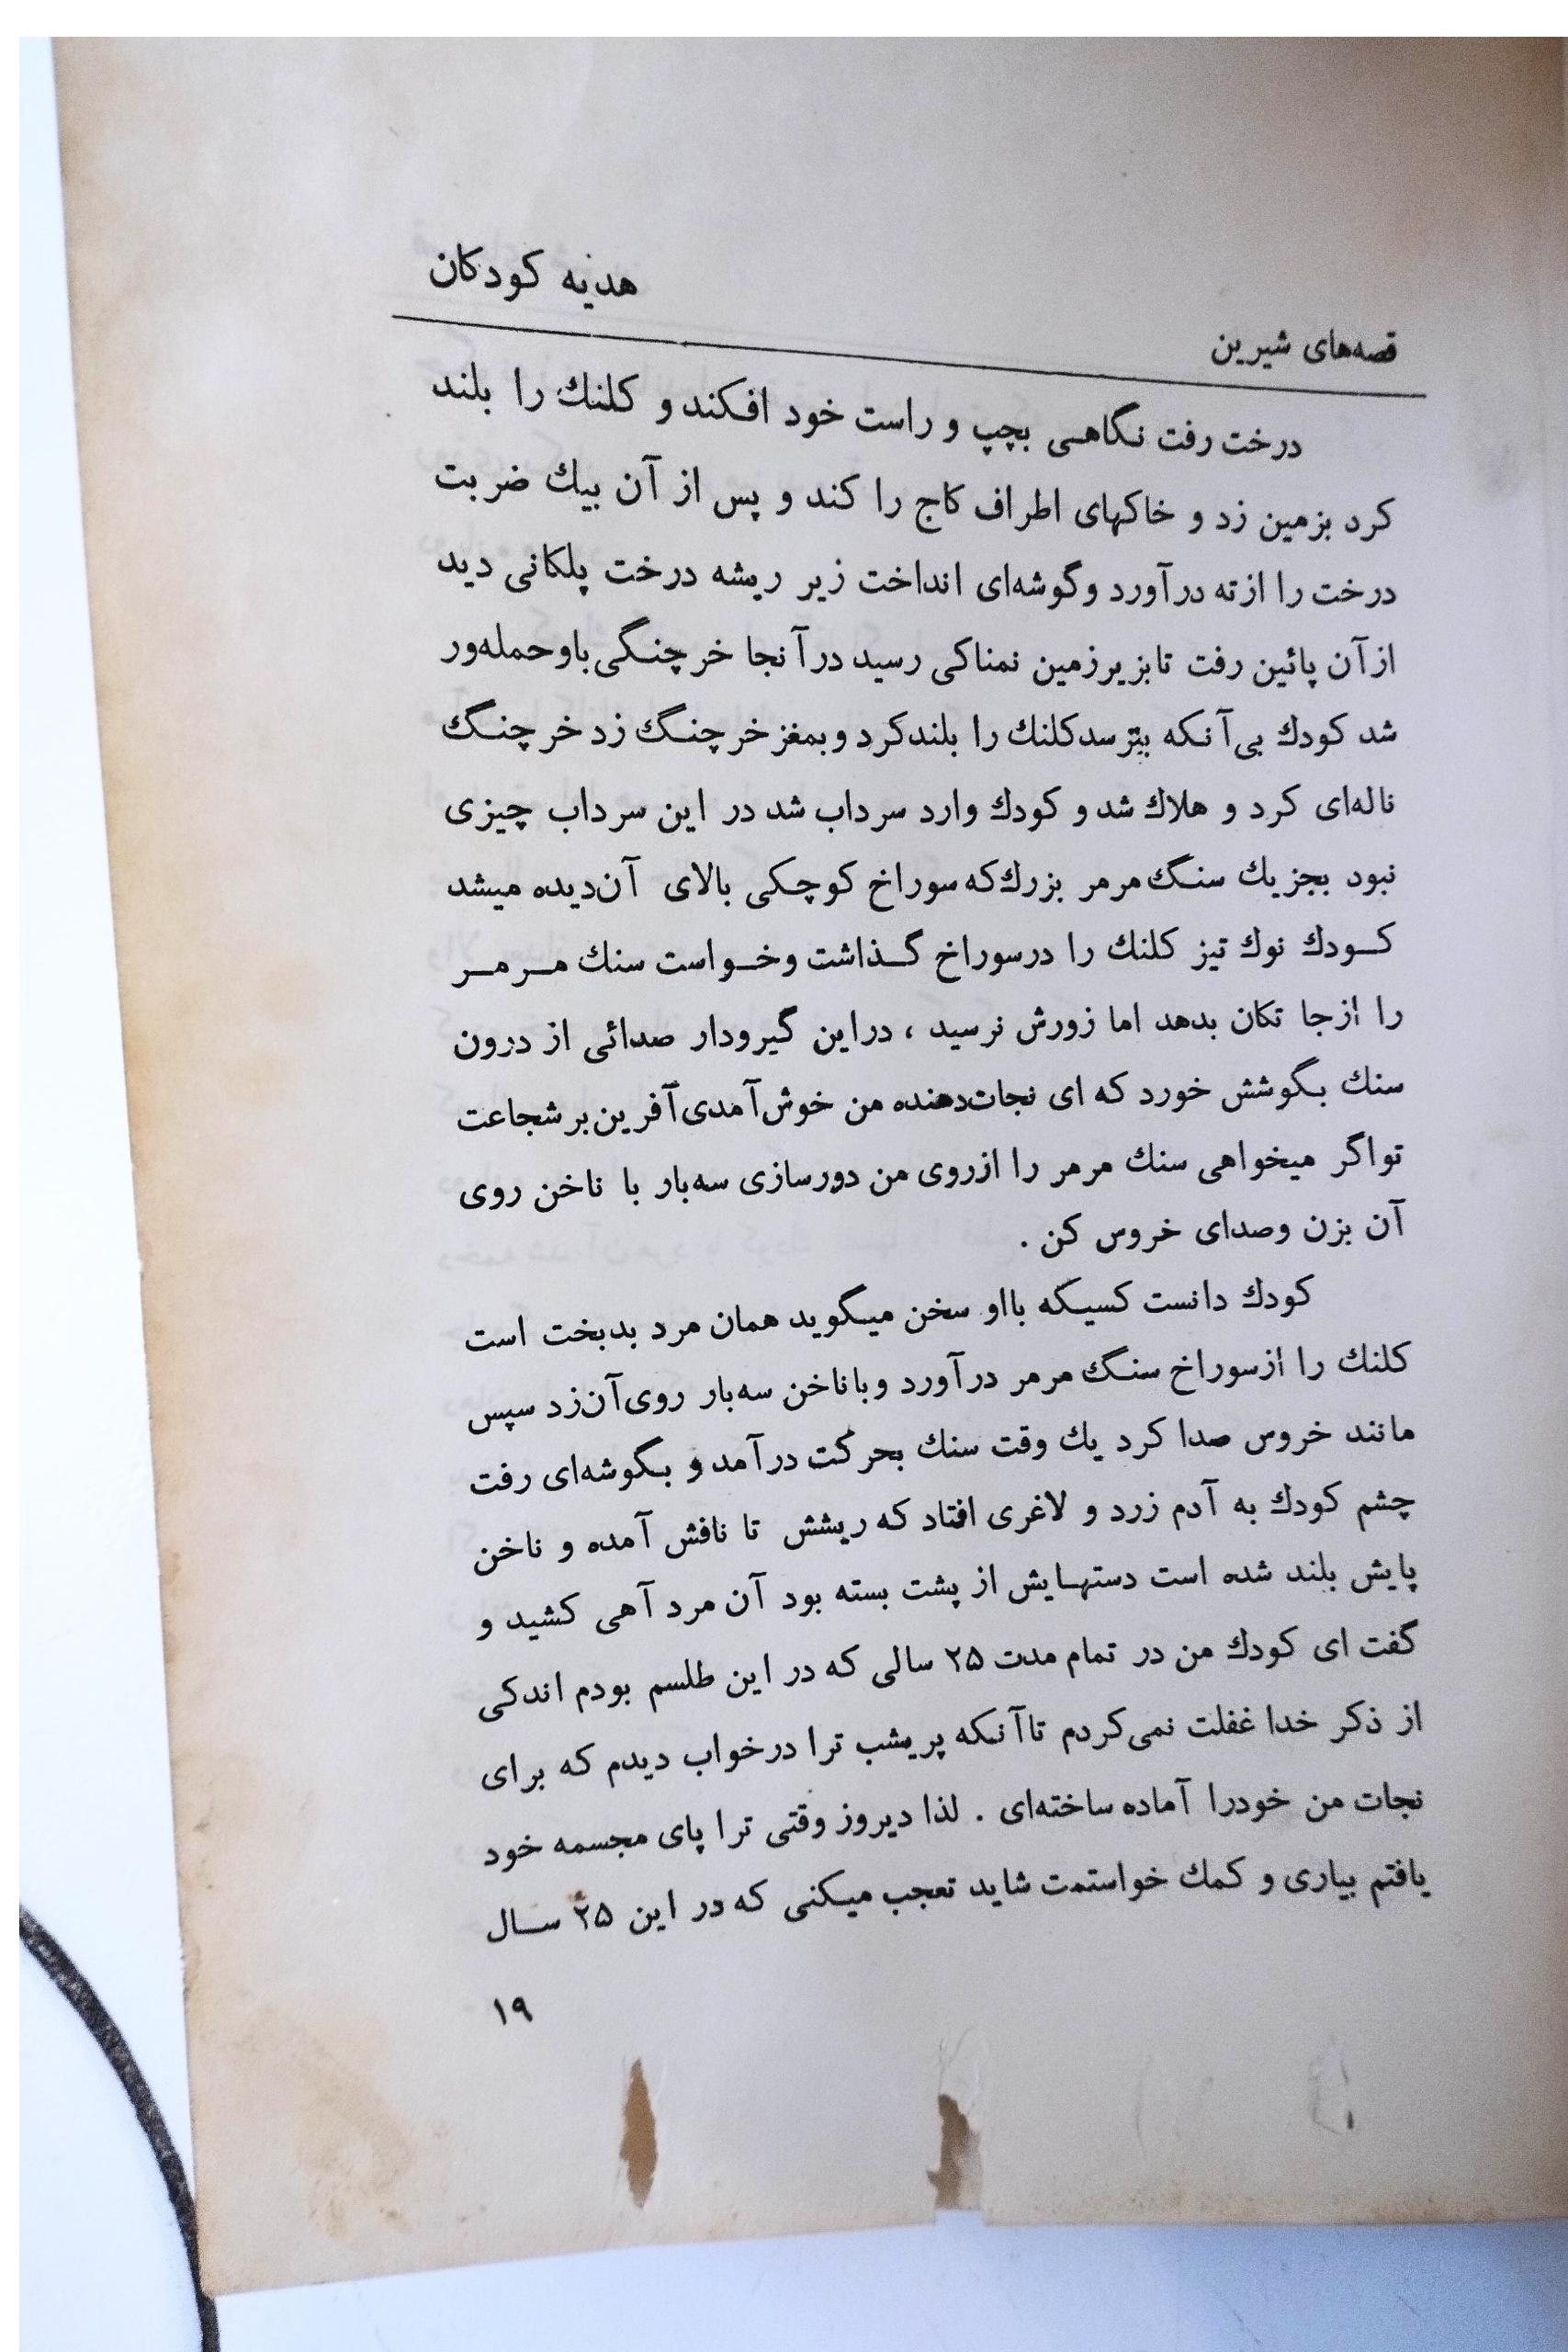 قصه‌های شیرین
هدیه کودکان
درخت رفت نگاهی بچپ و راست خود افکند و کلنك را بلند
کرد بزمین زد و خاکهای اطراف کاج را کند و پس از آن بیك ضربت
درخت را از ته در آورد و گوشه‌ای انداخت زیر ریشه درخت پلکانی دید
از آن پائین رفت تا بزیر زمین نمناکی رسید در آنجا خرچنگی باو حمله‌ور
شد کودك بی‌آنکه بترسد کلنك را بلند کرد و بمغز خرچنگ زد خرچنگ
ناله‌ای کرد و هلاك شد و کودك وارد سرداب شد در این سرداب چیزی
نبود بجز یك سنگ مرمر بزرك که سوراخ کوچکی بالای آن دیده میشد
کودك نوك تیز کلنك را در سوراخ گذاشت و خواست سنك مرمر
را از جا تکان بدهد اما زورش نرسید ، در این گیرودار صدائی از درون
سنك بگوشش خورد که ای نجات‌دهنده من خوش آمدی آفرین بر شجاعت
تو اگر میخواهی سنك مرمر را از روی من دور سازی سه بار با ناخن روی
آن بزن و صدای خروس کن .
کودك دانست کسیکه با او سخن میگوید همان مرد بدبخت است
کلنك را از سوراخ سنگ مرمر در آورد و با ناخن سه بار روی آن زد سپس
مانند خروس صدا کرد یك وقت سنك بحرکت در آمد و بگوشه‌ای رفت
چشم کودك به آدم زرد و لاغری افتاد که ریشش تا نافش آمده و ناخن
پایش بلند شده است دستهایش از پشت بسته بود آن مرد آهی کشید و
گفت ای کودك من در تمام مدت ۲۵ سالی که در این طلسم بودم اندکی
از ذکر خدا غفلت نمی‌کردم تا آنکه پریشب ترا در خواب دیدم که برای
نجات من خود را آماده ساخته‌ای . لذا دیروز وقتی ترا پای مجسمه خود
یافتم بیاری و کمك خواستمت شاید تعجب میکنی که در این ۲۵ سال
۱۹